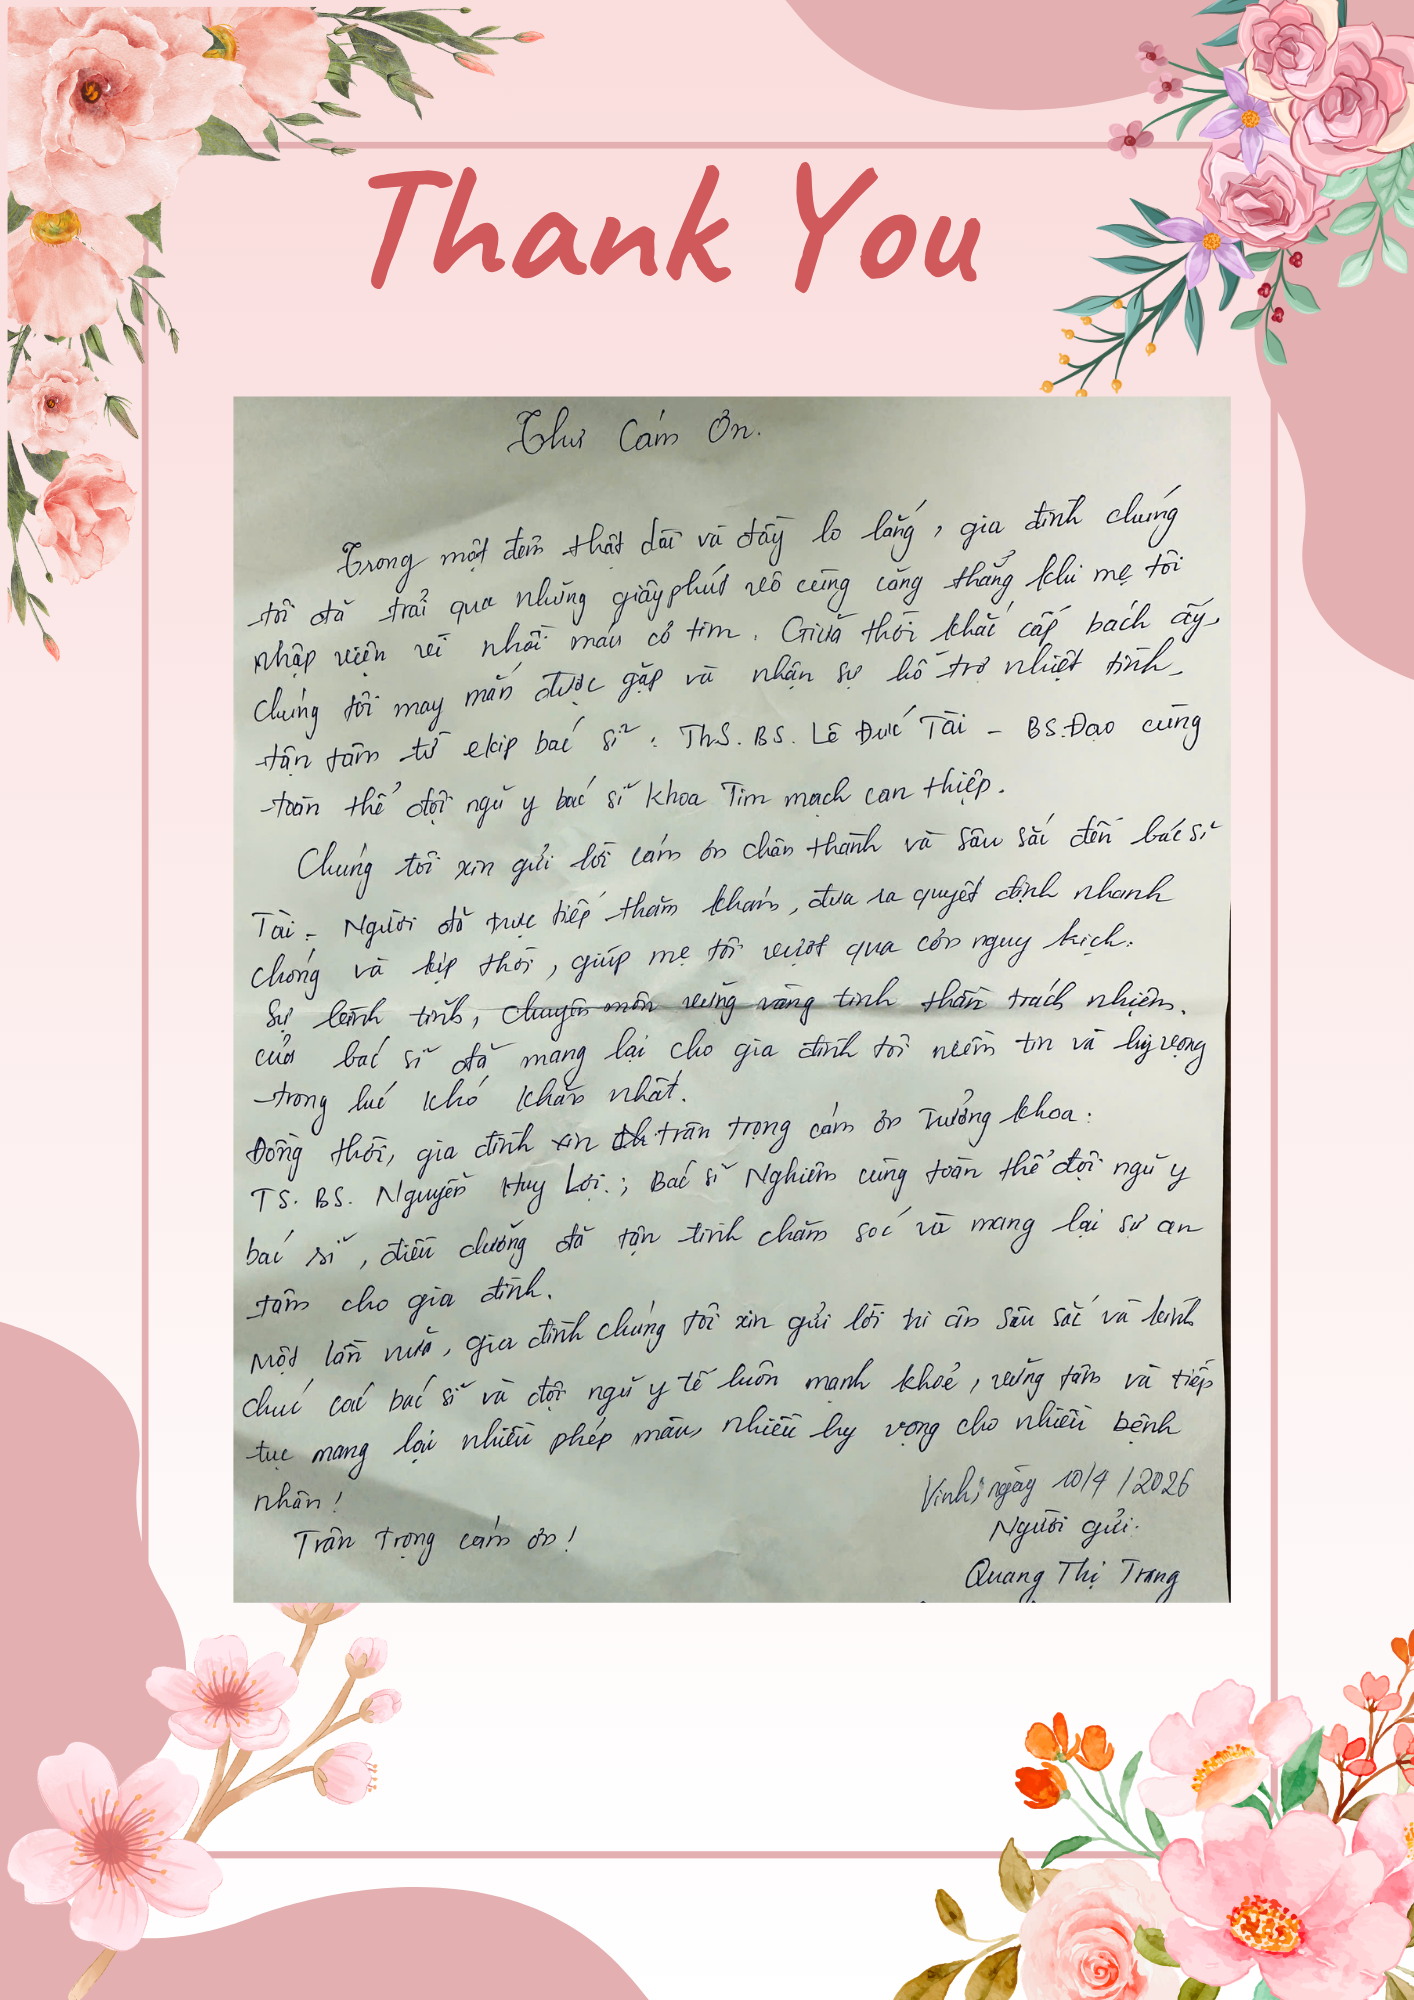 Thank You
Thư Cám Ơn.
Trong một đêm thật dài và đầy lo lắng, gia đình chúng
tôi đã trải qua những giây phút vô cùng căng thẳng khi mẹ tôi
nhập viện vì nhồi máu cơ tim. Giữa thời khắc cấp bách ấy,
chúng tôi may mắn được gặp và nhận sự hỗ trợ nhiệt tình
tận tâm từ ekip bác sĩ: ThS. BS. Lê Đức Tài - BS. Đạo cùng
toàn thể đội ngũ y bác sĩ khoa Tim mạch can thiệp.
Chúng tôi xin gửi lời cám ơn chân thành và sâu sắc đến bác sĩ
Tài - Người đã trực tiếp thăm khám, đưa ra quyết định nhanh
chóng và kịp thời, giúp mẹ tôi vượt qua cơn nguy kịch.
Sự bình tĩnh, chuyên môn vững vàng tinh thần trách nhiệm.
của bác sĩ đã mang lại cho gia đình tôi niềm tin và hy vọng
trong lúc khó khăn nhất.
Đồng thời, gia đình xin trân trọng cám ơn Trưởng khoa:
TS. BS. Nguyễn Huy Lợi.; Bác sĩ Nghiêm cùng toàn thể đội ngũ y
bác sĩ, điều dưỡng đã tận tình chăm sóc và mang lại sự an
tâm cho gia đình.
Một lần nữa, gia đình chúng tôi xin gửi lời tri ân sâu sắc và kính
chúc các bác sĩ và đội ngũ y tế luôn mạnh khoẻ, vững tâm và tiếp
tục mang lại nhiều phép màu, nhiều hy vọng cho nhiều bệnh
nhân!
Trân trọng cám ơn!
Vinh, ngày 10/4/2026
Người gửi.
Quang Thị Trang